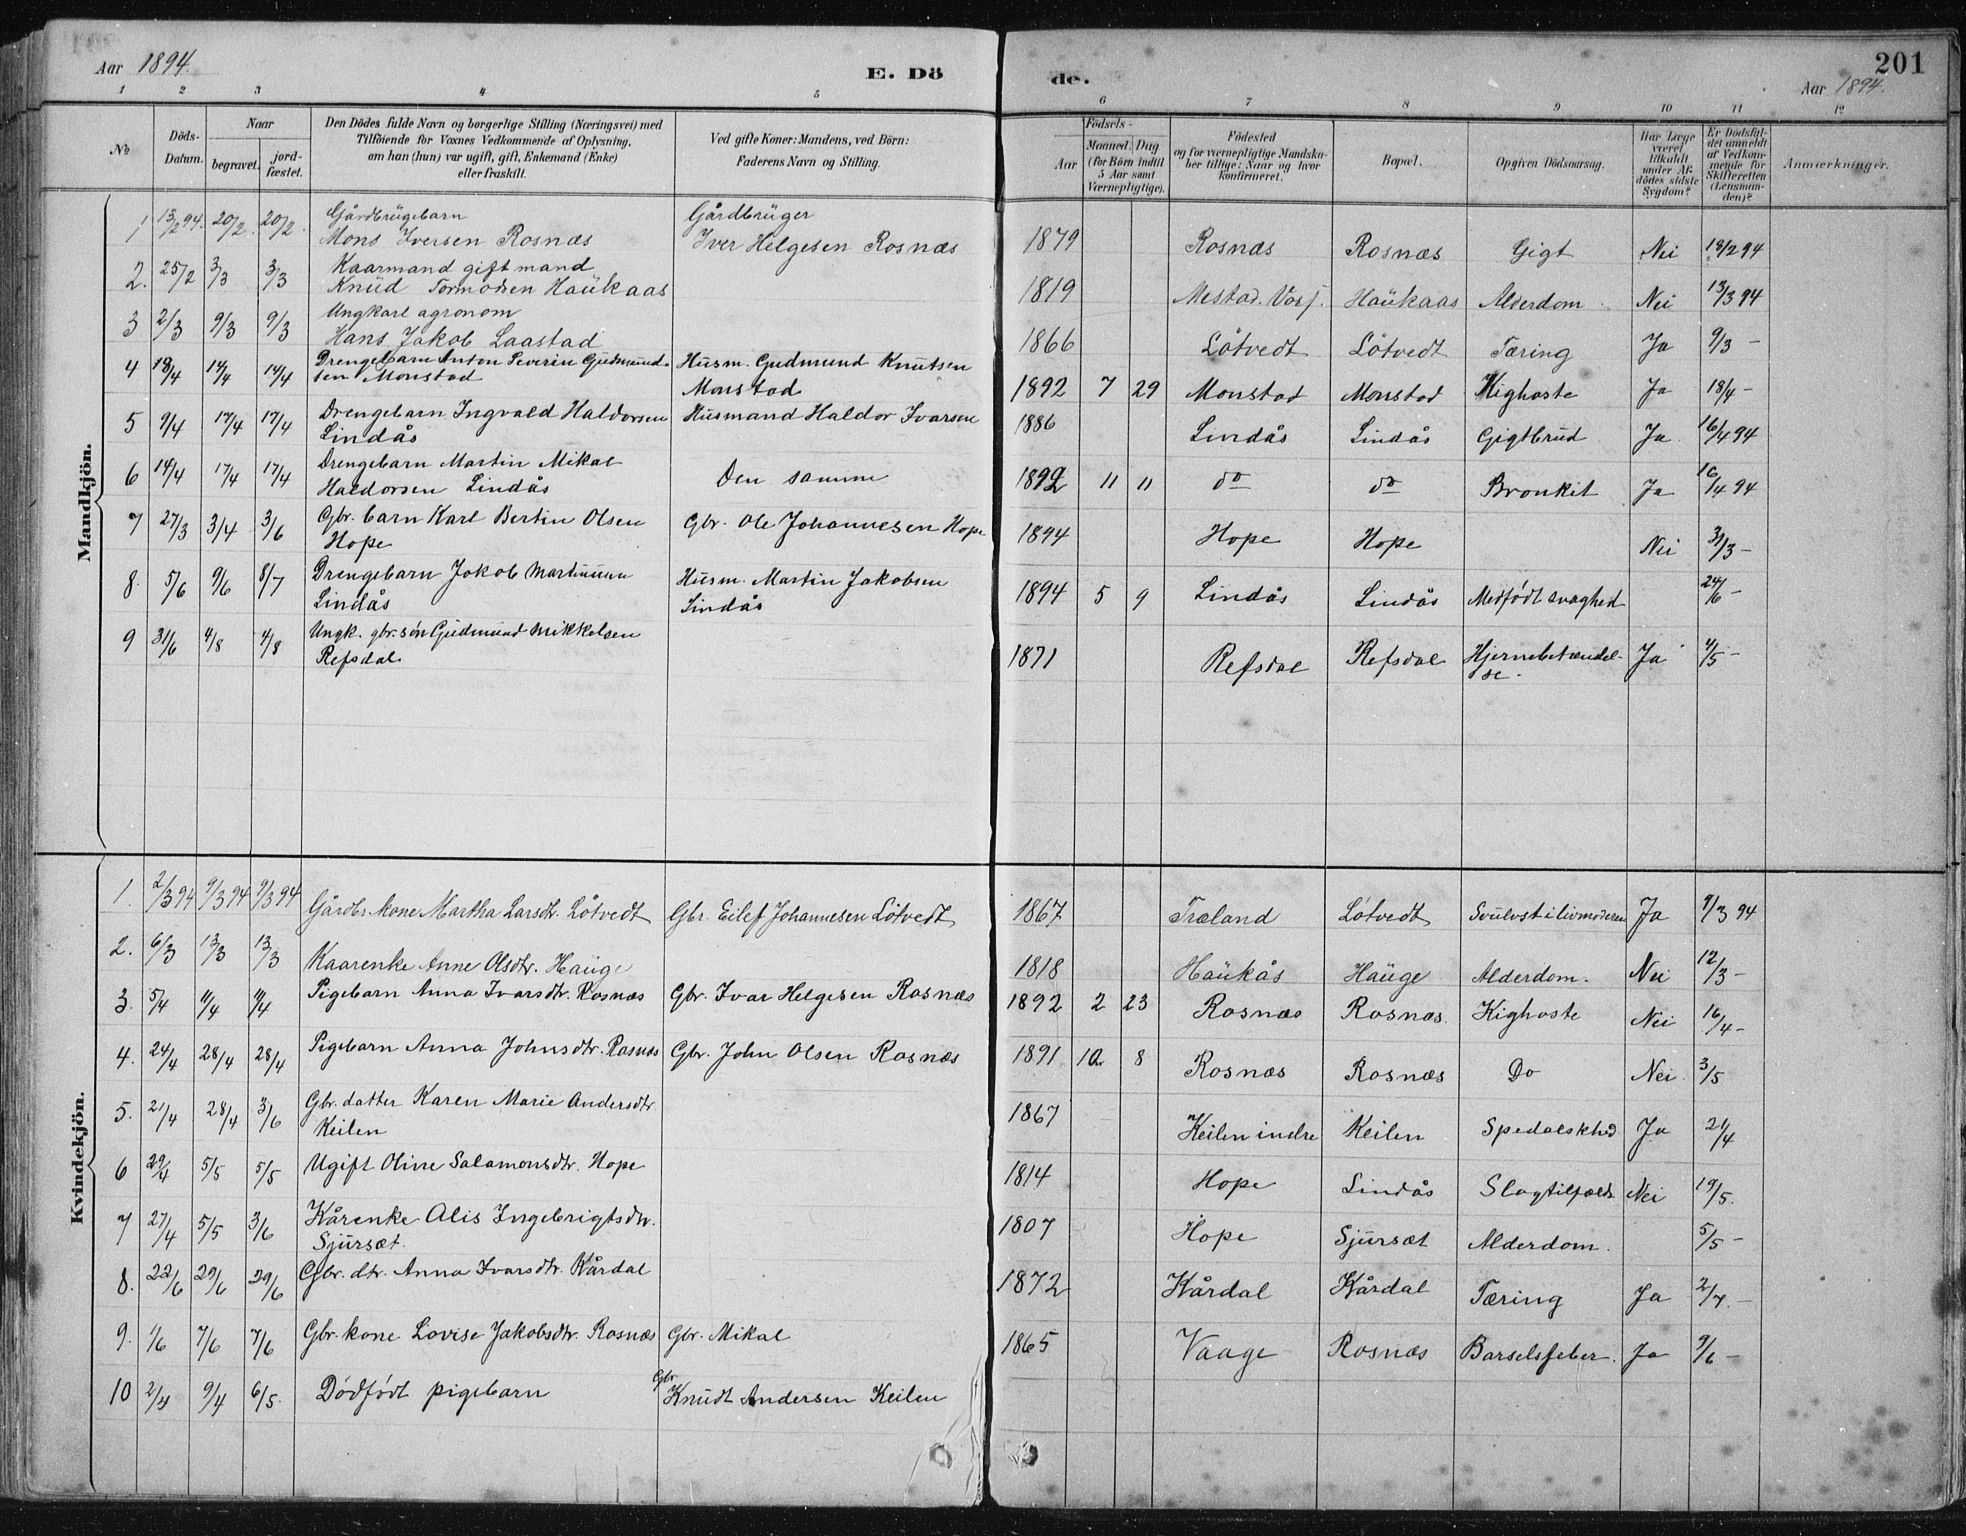 Aar 1894.
E. Dö
de.
201
Aar 1894.
1 2 3 4 5 6 7 8 9 10 11 12
No
Döds-Datum.
Naar
begravet.
jord-fæstet.
Den Dödes fulde Navn og borgerlige Stilling (Næringsvei) med
Tilföiende for Voxnes Vedkommende af Oplysning,
om han (hun) var ugift, gift, Enkemand (Enke)
eller fraskilt.
Ved gifte Koner: Mandens, ved Börn:
Faderens Navn og Stilling.
Födsels-
Aar
Maaned. Dag
(for Börn indtil
5 Aar samt
Værnepligtige).
Födested
og for værnepligtige Mandska-
ber tillige: Naar og hvor
konfirmeret.
Bopæl.
Opgiven Dödsaarsag.
Har Læge
været
tilkaldt
under Af-
dödes sidste
Sygdom?
Er Dödsfal-
det anmeldt
af Vedkom-
mende for
Skifteretten
(Lensman-
den)?
Anmærkninger.
Mandkjön.
1 13/2 94. 20/2. 20/2. Gårdbrügebarn Gårdbrüger
Mons Iversen Rosnæs Iver Helgesen Rosnæs 1879 Rosnæs Rosnæs Gigt Nei 18/2 94
2. 25/2 3/3 3/3 Kaarmand gift mand
Knüd Tormodsen Haükaas 1819 Mestad. Vosj. Haükaas Alderdom. Nei 13/3 94
3 2/3 9/3 9/3 Ungkarl agronom
Hans Jakob Laastad 1866 Lötvedt Lötvedt Tæring Ja 9/3 -
4 18/4 14/4 14/4 Drengebarn Anton Severin Gudmund- Husm. Gudmund Knutsen
sen Monstad Monstad 1892 7 29 Monstad Monstad Kighoste Ja 18/4 -
5 9/4 17/4 17/4 Drengebarn Ingvald Haldorsen Husmand Haldor Ivarsen
Lindås 1886 Lindås Lindås Gigtbrud Ja 16/4 94
6 14/4 17/4 17/4 Drengebarn Martin Mikal
Haldorsen Lindås Den samme 1892 11 11 do do Bronkit Ja 16/4 94
7 27/3 3/4 3/6 Gbr. barn Karl Bertin Olsen Gbr. Ole Johannesen Hope
Hope 1894 Hope Hope Nei 31/3 -
8. 5/6 9/6 8/7 Drengebarn Jakob Martinusen Husm. Martin Jakobsen
Lindås Lindås 1894 5 9 Lindås Lindås Medfödt svaghed 24/6 -
9 31/6 4/8 4/8 Ungk. gbr. sön Gudmund Mikkelsen
Refsdal 1871 Refsdal Refsdal Hjernebetændel-
se. Ja 4/5 -
Kvindekjön.
1. 2/3 94 9/3 94 9/3 94 Gårdbr. kone Martha Larsdt. Lötvedt Gbr. Eilef Johannesen Lötvedt 1867 Træland Lötvedt Svülvst i livmoderen Ja 9/3 94
2. 6/3 13/3 13/3 Kaarenke Anne Olsdtr. Haüge 1818 Haükås Haüge Alderdom. Nei 12/3 -
3. 5/4 11/4 11/4 Pigebarn Anna Ivarsdtr. Rosnæs Gbr. Ivar Helgesen Rosnæs 1892 2 23 Rosnæs Rosnæs. Kighoste Nei 16/4 -
4. 24/4 28/4 28/4 Pigebarn Anna Johnsdtr. Rosnæs Gbr. John Olsen Rosnæs 1891 10. 8 Rosnæs Rosnæs Do Nei 3/5
5. 21/4 28/4 3/6 Gbr. datter Karen Marie Andersdtr
Keilen 1867 Keilen indre Keilen Spedalskhed Ja 21/4
6 29/4 5/5 5/5 Ugift Oline Salamonsdtr. Hope 1814 Hope Lindås Slagtilfælde Nei 19/5.
7 27/4 5/5 3/6 Kårenke Alis Ingebrigtsdtr.
Sjürsæt. 1807 Hope Sjürsæt Alderdom. 5/5 -
8. 22/6 29/6 29/6 Gbr. dtr. Anna Ivarsdtr. Kårdal 1872 Kårdal Kårdal Tæring Ja 2/7. -
9. 1/6 7/6 7/6 Gbr. kone Lovise Jakobsdtr. Rosnæs Gbr. Mikal 1865 Vaage Rosnæs Barselsfeber. Ja 9/6 -
10 2/4 9/4 6/5. Dödfödt pigebarn Gbr. Knudt Andersen Keilen